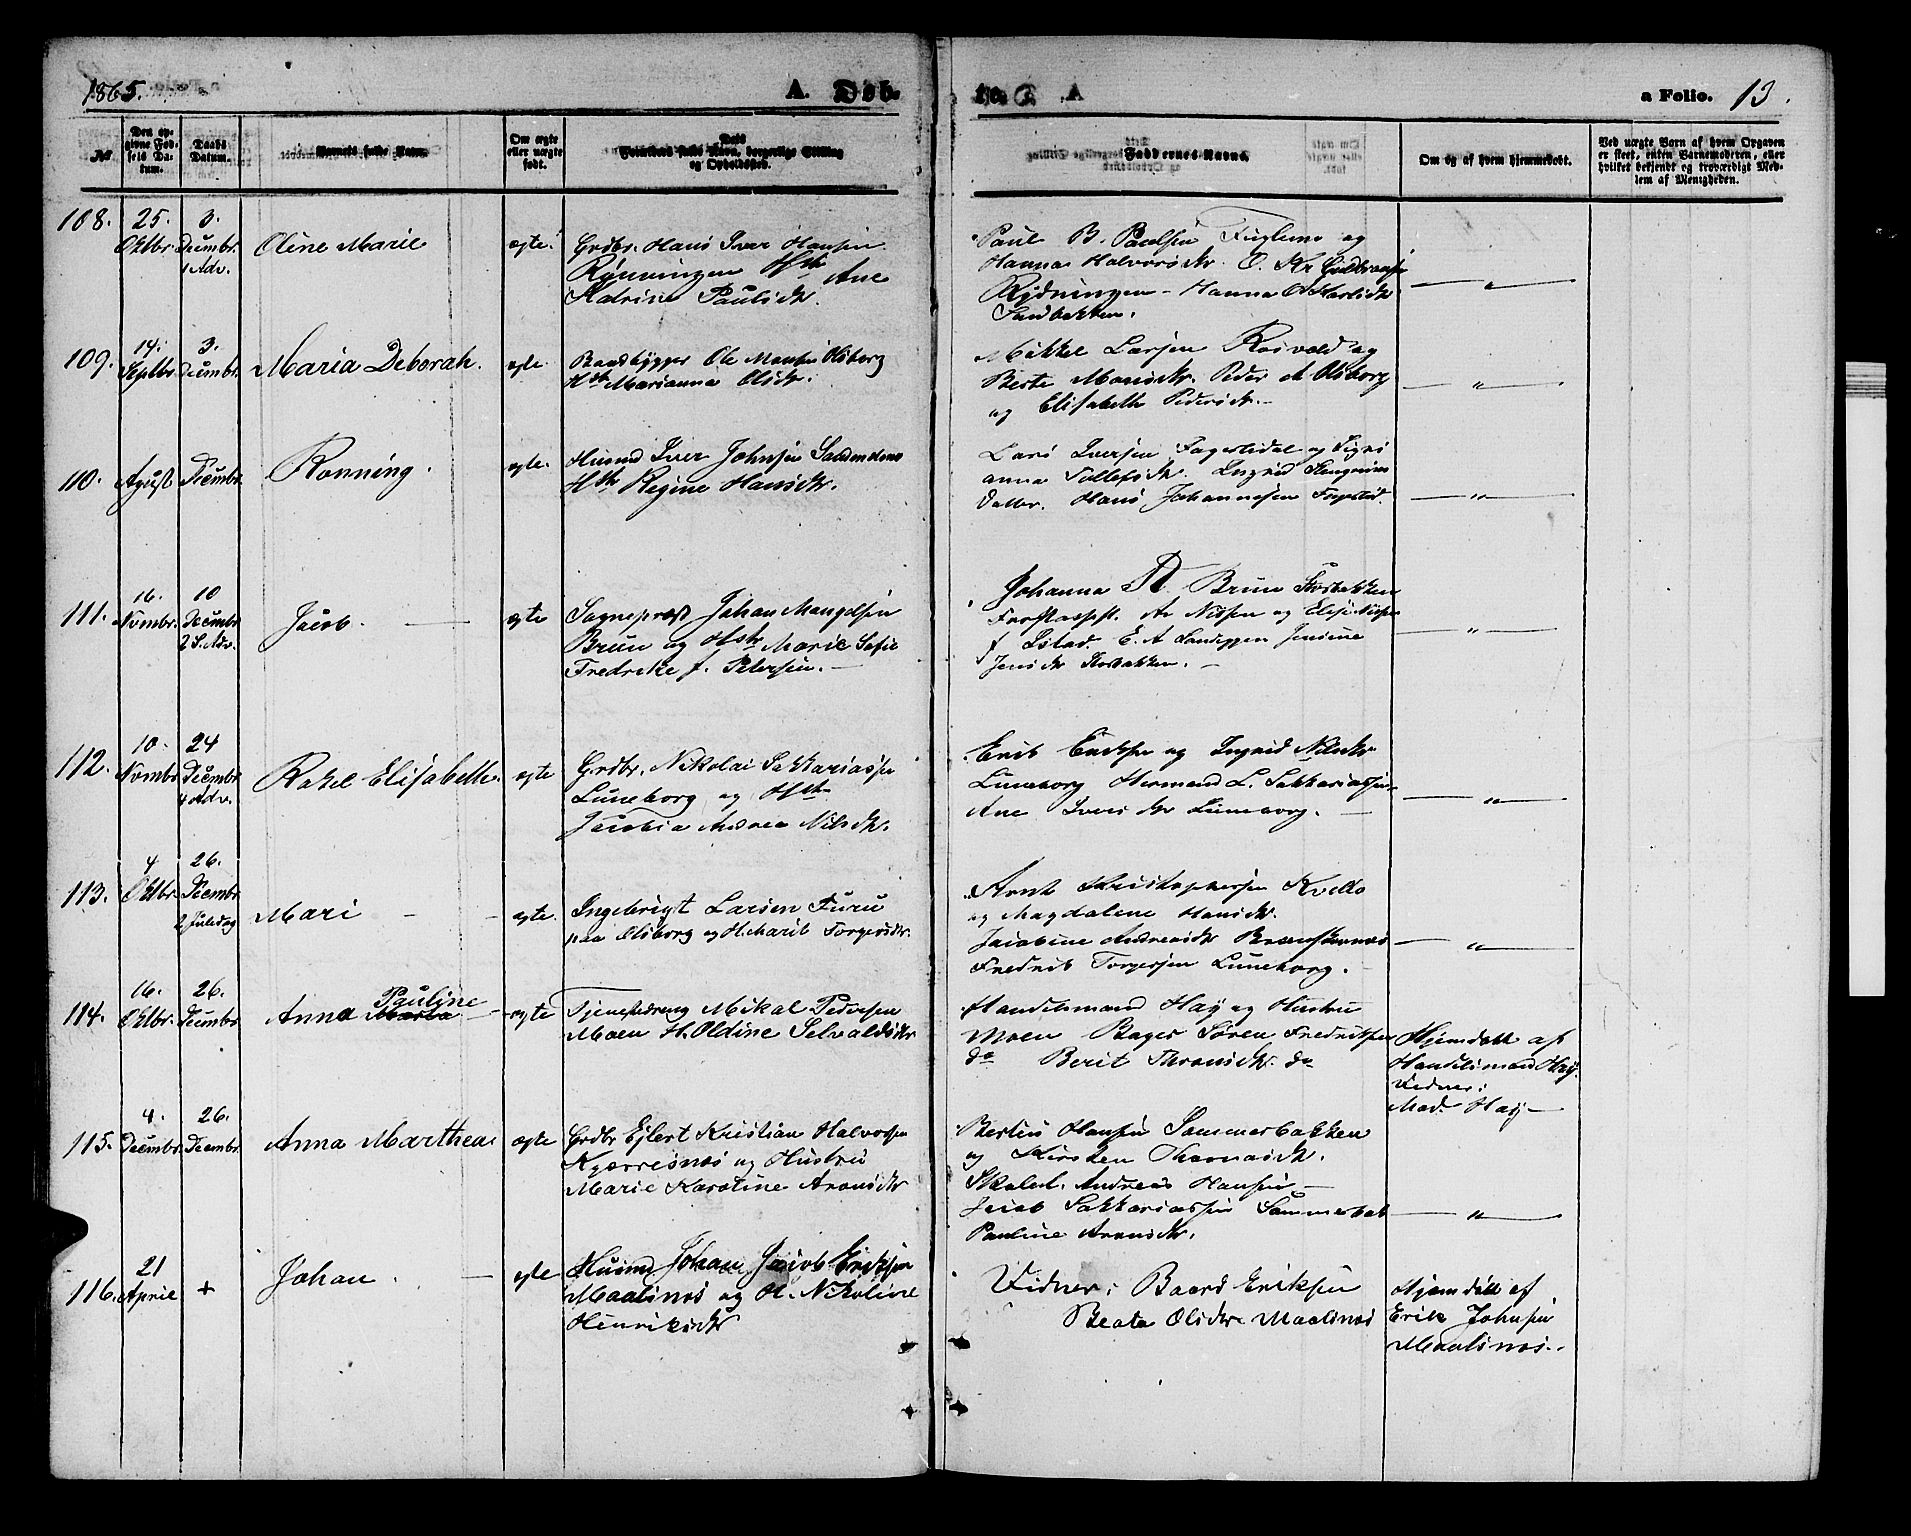 1865.
A. Døb.
a Folio. 13.
№
Den op-
givne Fød-
sels Da-
tum.
Daabs
Datum.
Barnets fulde Navn.
Om ægte
eller uægte
født.
Forældrenes fulde Navn, borgerlige Stilling
og Opholdssted.
Faddernes Navne.
Om og af hvem hjemmedøbt.
Ved uægte Barn af hvem Opgaven
er skeet, enten Barnemoderen, eller
hvilket bekjendt og troværdigt Med-
lem af Menigheden.
108.
25.
Oktbr.
3.
Decmbr.
1 Adv.
Oline Marie
ægte
Grdbr. Hans Iver Hansen
Rønningen Hstr Ane
Katrine Paulsdtr.
Paul B. Paulsen Fuglemo og
Hanna Halvorsdtr. O. Kr Guldbransen
Rydningen - Hanna
Sandbakken.
— " —
109.
14.
Septbr.
3.
Decmbr.
Maria Deborah.
ægte
Baadbygger Ole Monsen Olsborg
Hstr Marianna Olsdtr.
Mikkel Larsen Rosvold og
Berte Monsdtr. Peder A Olsborg
og Elisabeth Pedersdtr. -
— " —
110.
Agust
Decmbr.
Ronning.
ægte.
Husmd Iver Johnsen
Hstr Regine Hansdtr.
Lars Iversen Fagerlidal og Signi
anna Tollefsdtr. Ingrid
Datter. Hans Johannesen
— " —
111.
16.
Novmbr.
10
Decmbr
2 S. Adv.
Jacob. —
ægte
Sognepræst Johan Mangelsen
Brun og Hstr Marie Sofie
Fredrike f. Petersen. —
Johanna Brun Storbakken
Nilsen og Elise Nilsen
f Lstad. E. A Jensine
Jensdtr Storbakken. —
— " —
112.
10.
Novmbr.
24
Decmbr
4 Adv.
Rakel Elisabeth.
ægte
Grdbr. Nikolai Sakkariassen
Luneborg og Hstr
Jacobia Andrea Nilsdtr.
Erik Eriksen og Ingrid Nilsdtr
Luneborg Hermand L. Sakkariassen
Ane Iversdtr Luneborg. —
— " —
113.
4
Oktbr.
26.
Decmbr.
2 Juledag
Mari —
ægte.
Ingebrigt Larsen Furu
paa Olsborg og H. Marit Torgersdtr.
Arnt Kristophersen Kvello
og Magdalene Hansdtr.
Jacobine Andreasdtr
Fredrik Torgersen Luneborg.
— " —
114.
16.
Oktbr.
26.
Decmbr
Pauline
Anna Marta —
ægte
Tjenestedreng Mikal Pedersen
Moen H. Oldine Selvaldsdtr
Handelsmand Høy og Hustru
Moen Bager Søren Fredriksen
do Berit Thronsdtr. do
Hjemdøbt af
Handelsmand Høy.
Vidner:
Mad. Høy —
115.
4.
Decmbr.
26.
Decmbr.
Anna Marthea
ægte
Grdbr Ejlert Kristian Halvorsen
Kjærresnes og Hustru
Marie Karotine Aronsdtr
Bertin Hansen Sommerbakken
og Kirsten Thomasdtr.
Skolel. Andreas Hansen —
Jacob Sakkariassen Sommerbak
Pauline Aronsdtr.
— " —
116.
21
April
+
Johan. —
ægte
Husmd Johan Jacob Eriksen
Maalsnes og H. Nikoline
Henriksdtr
Vidner: Baard Eriksen
Beata Olsdtr Maalsnes
Hjemdøbt af
Erik Johnsen
Maalsnes.